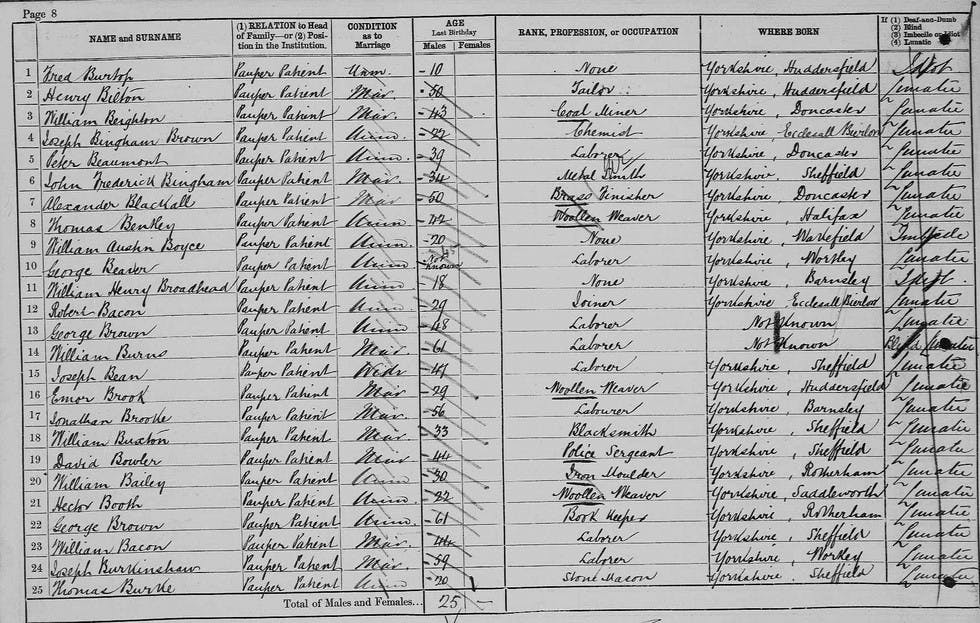 Page 8
NAME and SURNAME (1) RELATION to Head of Family—or (2) Position in the Institution. CONDITION as to Marriage AGE Last Birthday Males Females RANK, PROFESSION, or OCCUPATION WHERE BORN If (1) Deaf-and-Dumb (2) Blind (3) Imbecile or Idiot (4) Lunatic
1 Fred Burton Pauper Patient Unm. 10 None Yorkshire, Huddersfield Idiot
2 Henry Bilton Pauper Patient Mar. 50 Tailor Yorkshire, Huddersfield Lunatic
3 William Beighton Pauper Patient Mar. 43 Coal Miner Yorkshire, Doncaster Lunatic
4 Joseph Bingham Brown Pauper Patient Unm. 22 Chemist Yorkshire, Ecclesall Bierlow Lunatic
5 Peter Beaumont Pauper Patient Unm. 39 Laborer Yorkshire, Doncaster Lunatic
6 John Frederick Bingham Pauper Patient Mar. 34 Metal Smith Yorkshire, Sheffield Lunatic
7 Alexander Blackall Pauper Patient Mar 50 Brass Finisher Yorkshire, Doncaster Lunatic
8 Thomas Bentley Pauper Patient Unm. 42 Woollen Weaver Yorkshire, Halifax Lunatic
9 William Austin Boyce Pauper Patient Unm. 20 None Yorkshire, Wakefield Imbecile
10 George Beaver Pauper Patient Unm. Not Known Laborer Yorkshire, Wortley Lunatic
11 William Henry Broadhead Pauper Patient Unm 18 None Yorkshire, Barnsley Idiot.
12 Robert Bacon Pauper Patient Unm 29 Joiner Yorkshire, Ecclesall Bierlow Lunatic
13 George Brown Pauper Patient Unm 48 Laborer Not Known Lunatic
14 William Burns Pauper Patient Mar. 61 Laborer Not Known Blind Lunatic
15 Joseph Bean Pauper Patient Widr 47 Laborer Yorkshire, Sheffield Lunatic
16 Emor Brook Pauper Patient Mar 29 Woollen Weaver Yorkshire, Huddersfield Lunatic
17 Jonathan Brooke Pauper Patient Mar. 56 Labourer Yorkshire, Barnsley Lunatic
18 William Buxton Pauper Patient Mar. 33 Blacksmith Yorkshire, Sheffield Lunatic
19 David Bowler Pauper Patient Mar 44 Police Sergeant Yorkshire, Sheffield Lunatic
20 William Bailey Pauper Patient Mar. 30 Iron Moulder Yorkshire, Rotherham Lunatic
21 Hector Booth Pauper Patient Unm. 22 Woollen Weaver Yorkshire, Saddleworth Lunatic
22 George Brown Pauper Patient Unm. 61 Book Keeper Yorkshire, Rotherham Lunatic
23 William Bacon Pauper Patient Mar. 44 Laborer Yorkshire, Sheffield Lunatic
24 Joseph Burkinshaw Pauper Patient Mar. 59 Laborer Yorkshire, Wortley Lunatic
25 Thomas Burke Pauper Patient Unm 20 Stone Mason Yorkshire. Sheffield Lunatic
Total of Males and Females... 25 —